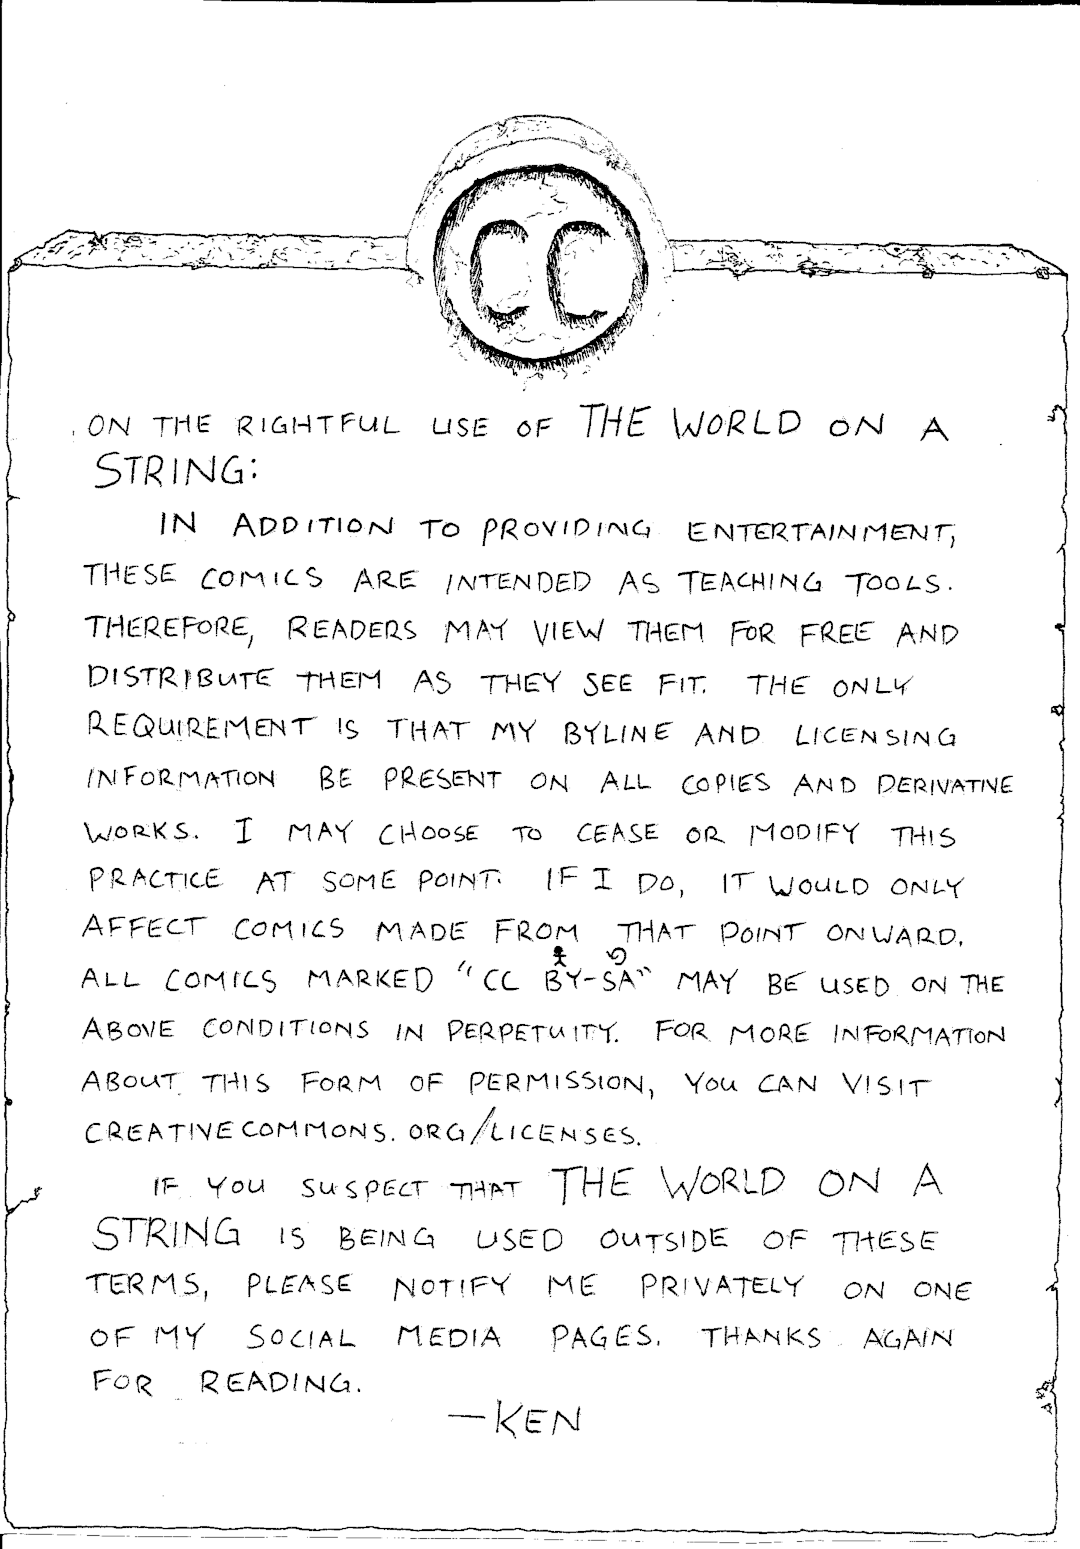 CC
ON THE RIGHTFUL USE OF THE WORLD ON A
STRING:
IN ADDITION TO PROVIDING ENTERTAINMENT,
THESE COMICS ARE INTENDED AS TEACHING TOOLS.
THEREFORE, READERS MAY VIEW THEM FOR FREE AND
DISTRIBUTE THEM AS THEY SEE FIT. THE ONLY
REQUIREMENT IS THAT MY BYLINE AND LICENSING
INFORMATION BE PRESENT ON ALL COPIES AND DERIVATIVE
WORKS. I MAY CHOOSE TO CEASE OR MODIFY THIS
PRACTICE AT SOME POINT. IF I DO, IT WOULD ONLY
AFFECT COMICS MADE FROM THAT POINT ONWARD.
ALL COMICS MARKED "CC BY-SA" MAY BE USED ON THE
ABOVE CONDITIONS IN PERPETUITY. FOR MORE INFORMATION
ABOUT THIS FORM OF PERMISSION, YOU CAN VISIT
CREATIVECOMMONS.ORG/LICENSES.
IF YOU SUSPECT THAT THE WORLD ON A
STRING IS BEING USED OUTSIDE OF THESE
TERMS, PLEASE NOTIFY ME PRIVATELY ON ONE
OF MY SOCIAL MEDIA PAGES. THANKS AGAIN
FOR READING.
—KEN